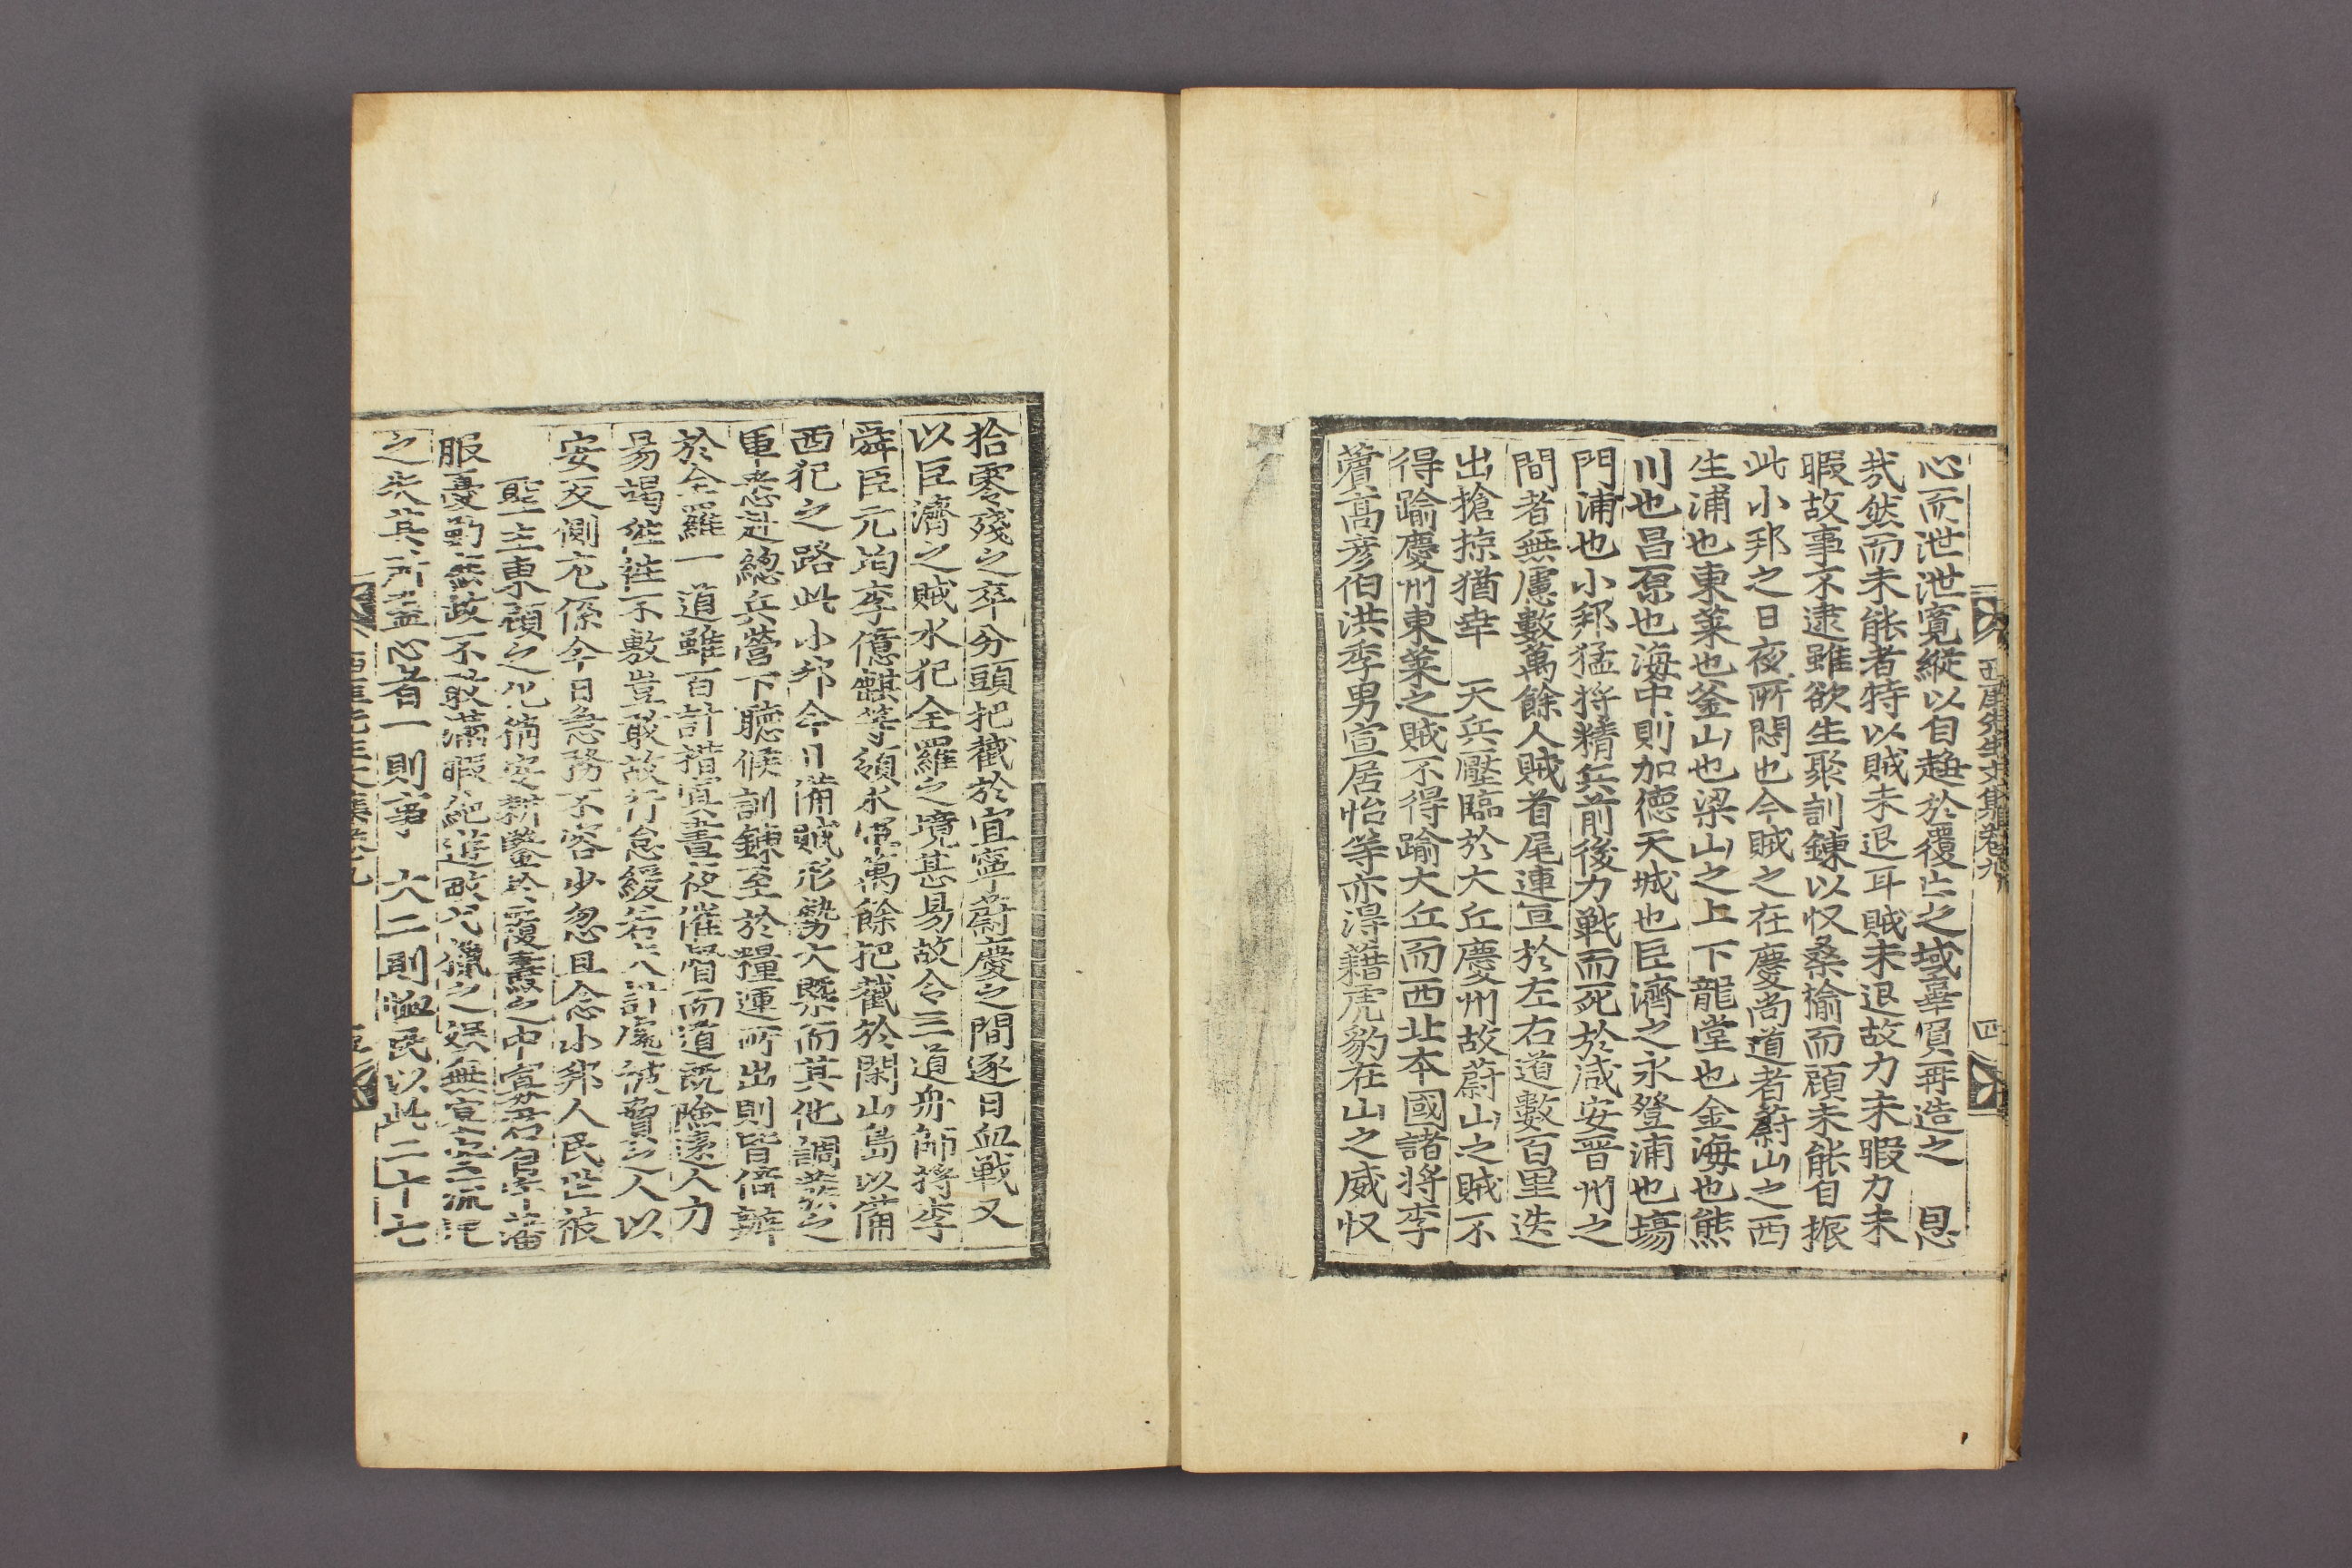 心而泄泄寬縱以自趍於覆亡之域辜負再造之 恩
㢤然而未能者特以賊未退耳賊未退故力未暇力未
暇故事不逮雖欲生聚訓鍊以収桑榆而頋未能自振
此小邦之日夜所悶也今賊之在慶尚道者蔚山之西
生浦也東萊也釜山也梁山之上下龍堂也金海也熊
川也昌原也海中則加德天城也巨濟之永登浦也塲
門浦也小邦猛將精兵前後力戰而死於咸安晋州之
間者無慮數萬餘人賊首尾連亘於左右道數百里迭
出搶掠猶幸 天兵壓臨於大丘慶州故蔚山之賊不
得踰慶州東萊之賊不得踰大丘而西北本國諸將李
薲高彦伯洪季男宣居怡等亦得藉虎豹在山之威収
西厓先生文集卷九 四
拾零殘之卒分頭把截於宜寧蔚慶之間逐日血戰又
以巨濟之賊水犯全羅之境甚易故令三道舟師將李
舜臣元均李億麒等領水軍萬餘把截於閑山島以備
西犯之路此小邦今日備賊形勢大槩而其他調發之
軍悉赴緫兵營下聽候訓鍊至於糧運所出則皆倍辦
於全羅一道雖百計措寘晝夜催督而道旣險遠人力
易竭徃徃不敷豈敢故行怠緩若夫計處被賣之人以
安反側尤係今日急務不容少忽且念小邦人民世被
聖主東顧之
服憂勤無故不敢滿暇絶遊畋弋獵之娛無宣室流
之失其所盡心者一則事 大二則恤民以此二十七